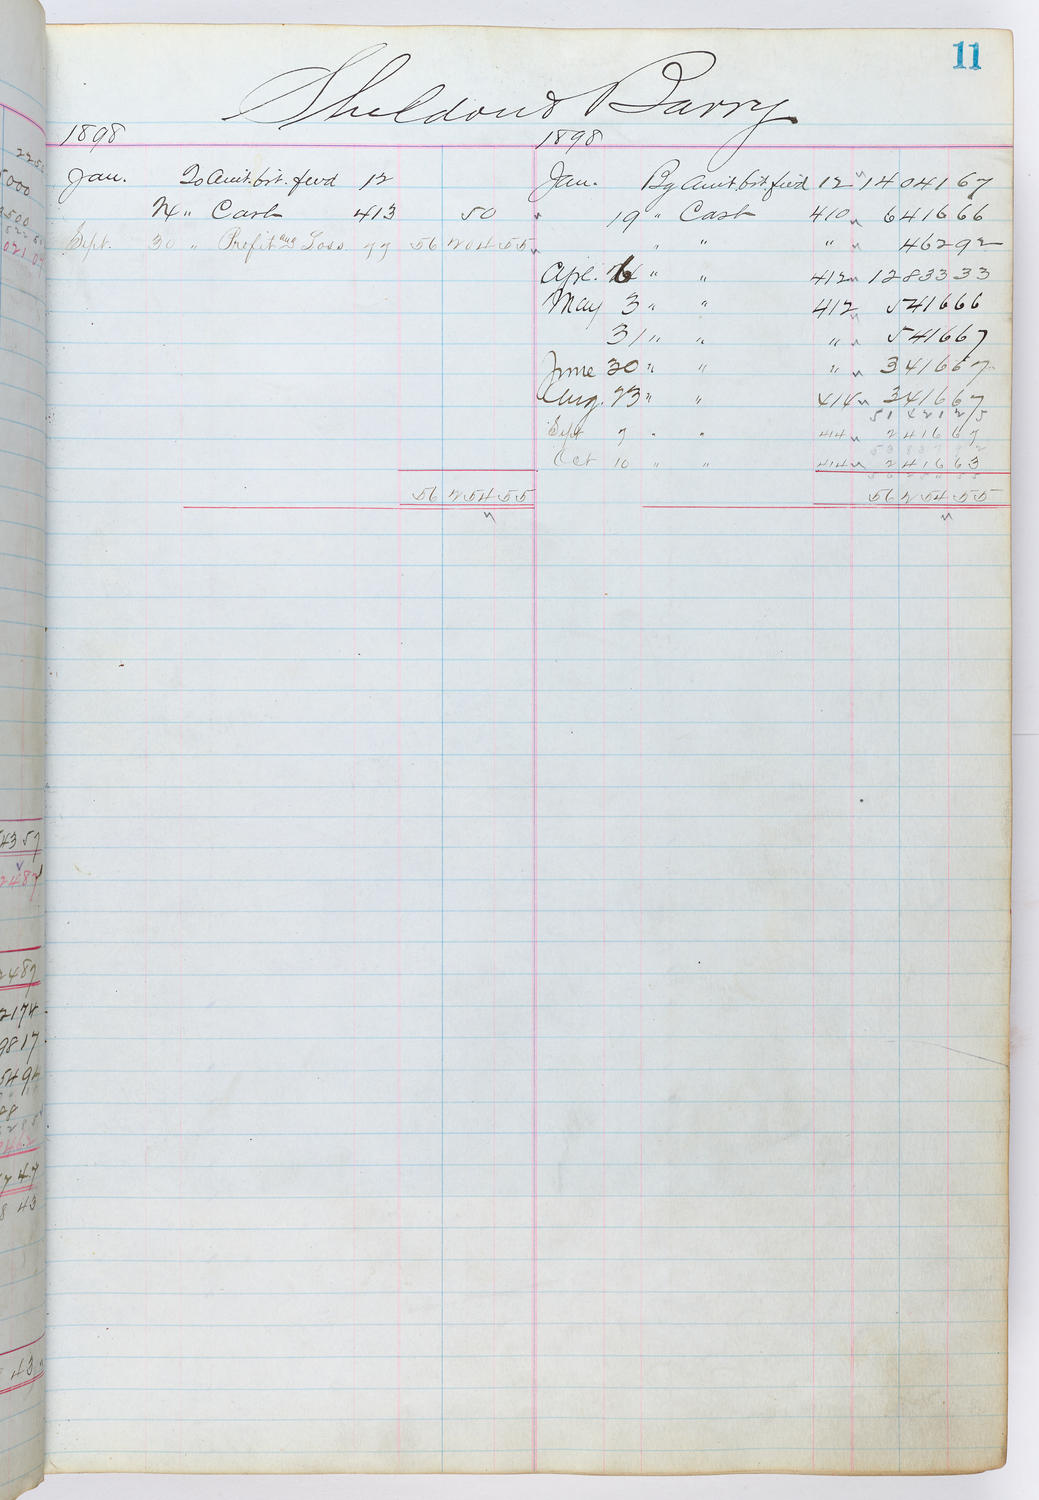 11
Sheldon & Barry
1898
Jan. To Amt. brt. fwd 12
24 " Cash 413 50
Sept. 30 " Profit and Loss 77 56 204 55
56 254 55
1898
Jan. By Amt brt fwd 12 14 041 67
19 " Cash 410 6 416 66
" " " 462 92
Apl. 6 " " 412 12 833 33
May 3 " " 412 5 416 66
31 " " " 5 416 67
June 30 " " " 3 416 67
Aug. 23 " " 414 3 416 67
51 421 25
Sept 7 " " 414 2 416 67
53 837 92
Oct 10 " " 414 2 416 63
56 254 55
56 254 55